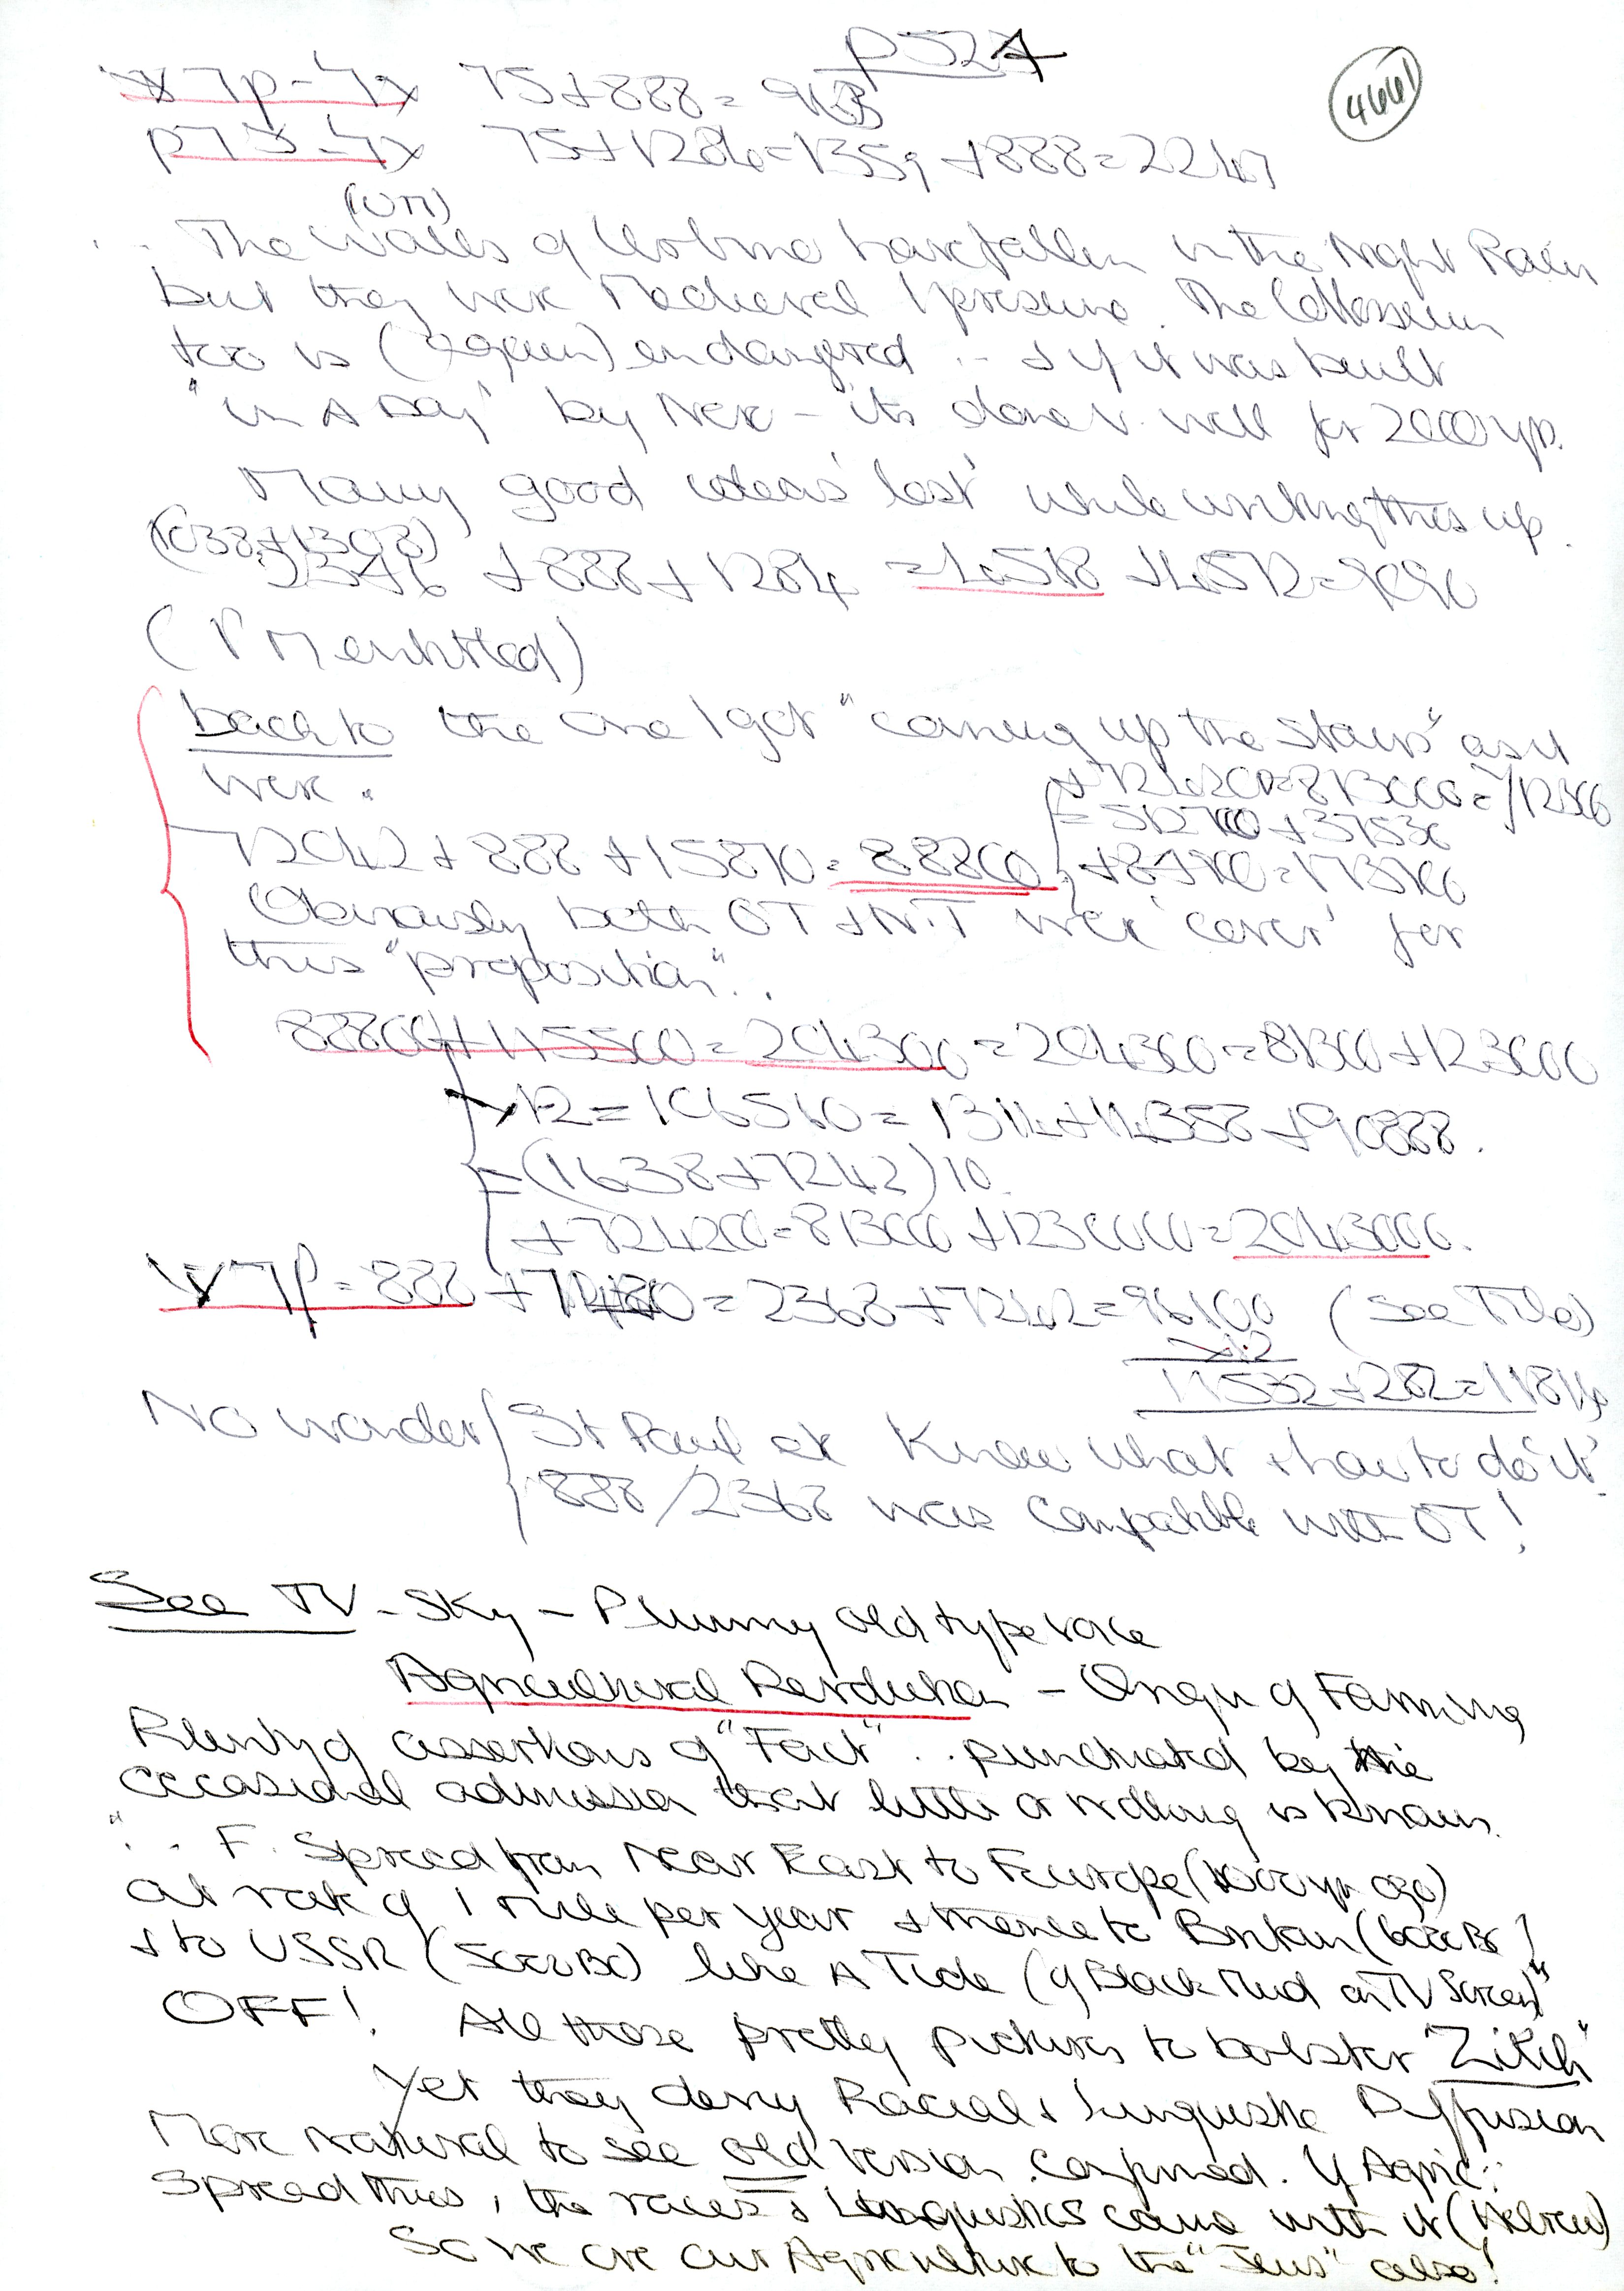 p 527
4661
7p - 4x 75+888 = 963
75+1284=1359+888=2247
The Walls of have fallen in the Night Rain
but they were Medieval I presume. The Colosseum
too is (again) endangered .. & if it was built
"in A Day" by Nero - its done v. well for 2000 yrs.
Many good ideas 'lost' while writing this up.
(1038+1308)
2346 + 888 + 1284 = 4518 + 4572 = 9090
(PM entitled)
back to the one I got "coming up the stairs" as it
were.
72042 + 888 + 15870 = 88800
Obviously both OT & N.T were 'cover' for
this "proposition"..
88800+115500=204300=204300=81300+123000
x 12 = 106560 = 1314+14358+90888.
=(1638+7242)10
+724200=813000+1230000=2043000.
7p = 888 + = 2368 + 7242 = 96100 (see Title)
x12
11532+282=11814
No wonder St Paul etc Knew what & how to do it!
888/2368 was compatible with OT!
See TV - Sky - Plummy old type voice
Agricultural Revolution - Origin of Farming
Plenty of assertions of "Fact".. punctuated by the
occasional admission that little or nothing is known.
".. F. Spread from Near East to Europe ( yr ago)
at rate of 1 mile per year & thence to Britain (6000 BC)
& to USSR (5000 BC) like A Tide (of Black Mud on TV Screen)"
OFF! All those pretty pictures to bolster "Zilch"
Yet they deny Racial & Linguistic Diffusion
More natural to see old version confirmed. If Agric:
Spread thus, the races & Linguistics came with it (Hebrew)
So we owe our Agriculture to the "Jews" also!